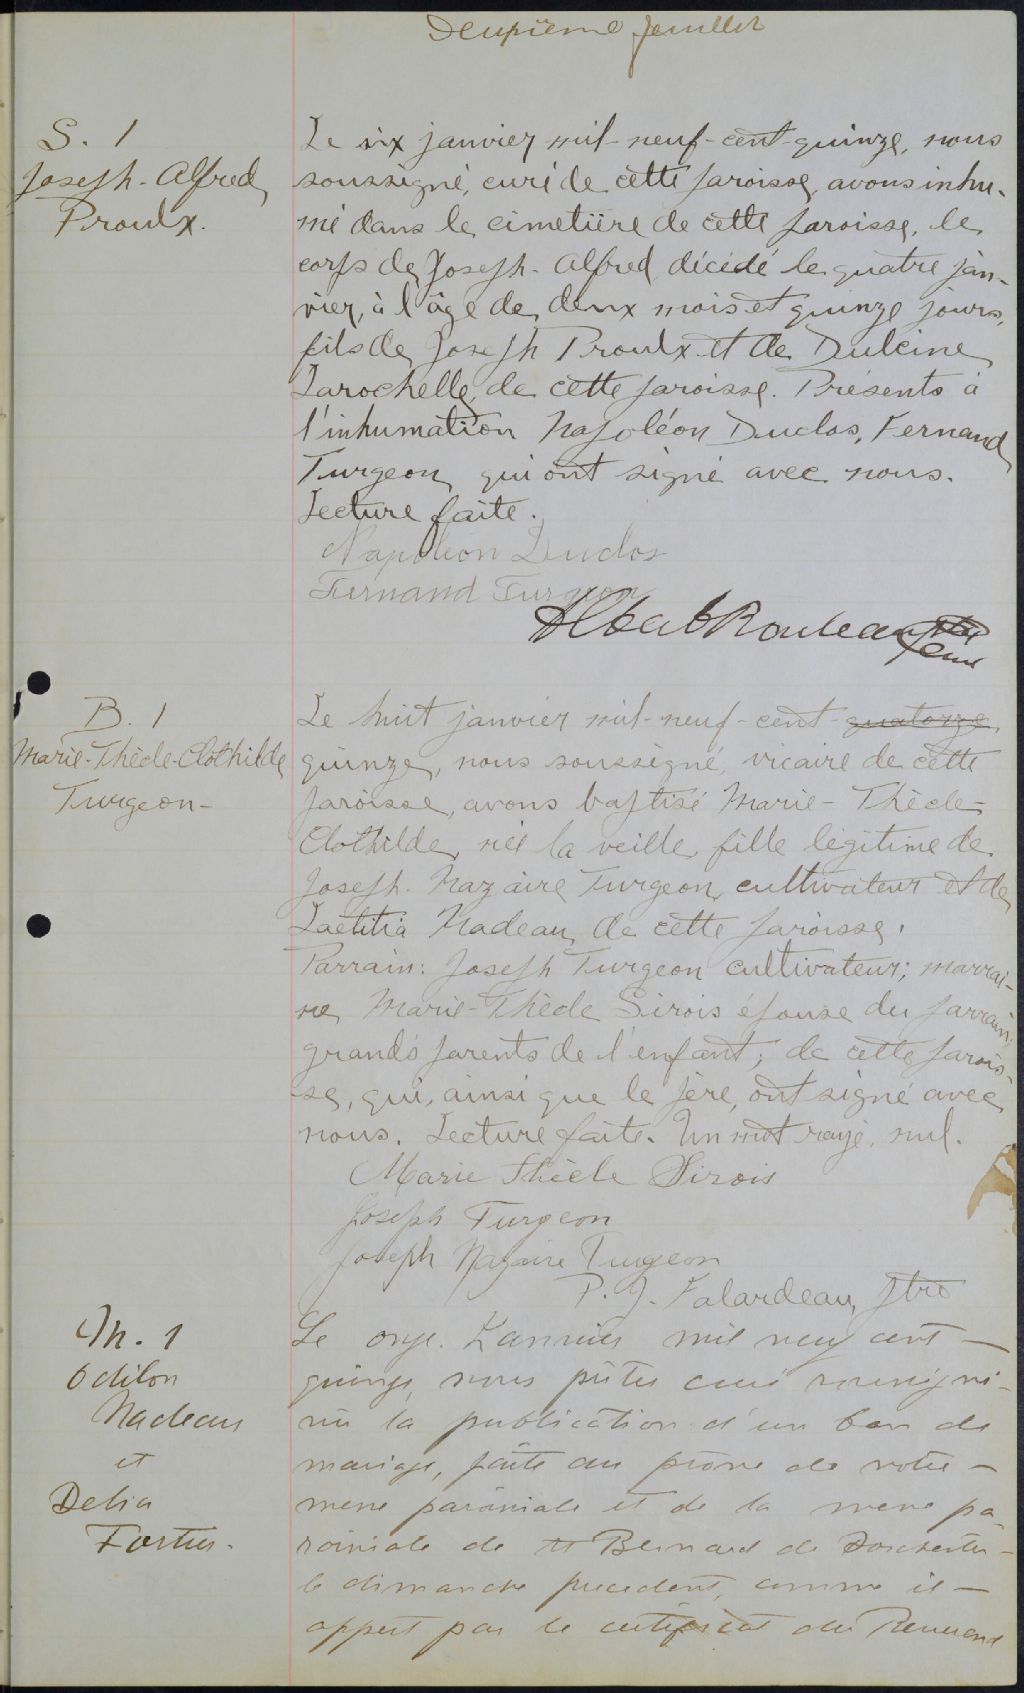 Deuxième feuillet
S. 1
Joseph-Alfred
Proulx.
Le six janvier mil-neuf-cent-quinze, nous
soussigné, curé de cette paroisse, avons inhu-
mé dans le cimetière de cette paroisse, le
corps de Joseph-Alfred, décédé le quatre jan-
vier, à l'âge de deux mois et quinze jours,
fils de Joseph Proulx et de Dulcine
Larochelle, de cette paroisse. Présents à
l'inhumation Napoléon Duclos, Fernand
Turgeon, qui ont signé avec nous.
Lecture faite.
Napoléon Duclos
Fernand Turgeon
Albert Rouleau Ptre
Curé
B. 1
Marie-Thècle-Clothilde
Turgeon-
Le huit janvier mil-neuf-cent-quatorze
quinze, nous soussigné, vicaire de cette
paroisse, avons baptisé Marie-Thècle-
Clothilde, née la veille, fille légitime de
Joseph-Nazaire Turgeon, cultivateur et de
Laetitia Nadeau, de cette paroisse.
Parrain: Joseph Turgeon cultivateur; marrai-
ne, Marie-Thècle Sirois épouse du parrain,
grands parents de l'enfant; de cette parois-
se, qui, ainsi que le père, ont signé avec
nous. Lecture faite. Un mot rayé, nul.
Marie Thècle Sirois
Joseph Turgeon
Joseph Nazaire Turgeon
P. J. Falardeau, ptre
M. 1
Odilon
Nadeau
et
Delia
Fortier.
Le onze Janvier mil neuf cent-
quinze, nous prêtre curé soussigné-
vu la publication d'un ban de
mariage, faite au prône de notre-
messe paroissiale et de la messe pa-
roissiale de St Bernard de Dorchester-
le dimanche precedent, comme il-
appert par le certificat du Reverend